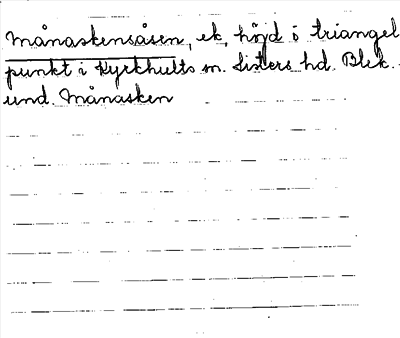 Månaskensåsen, ek, höjd o triangel
punkt i Kyrkhults sn. Listers hd. Blek.
und. Månasken